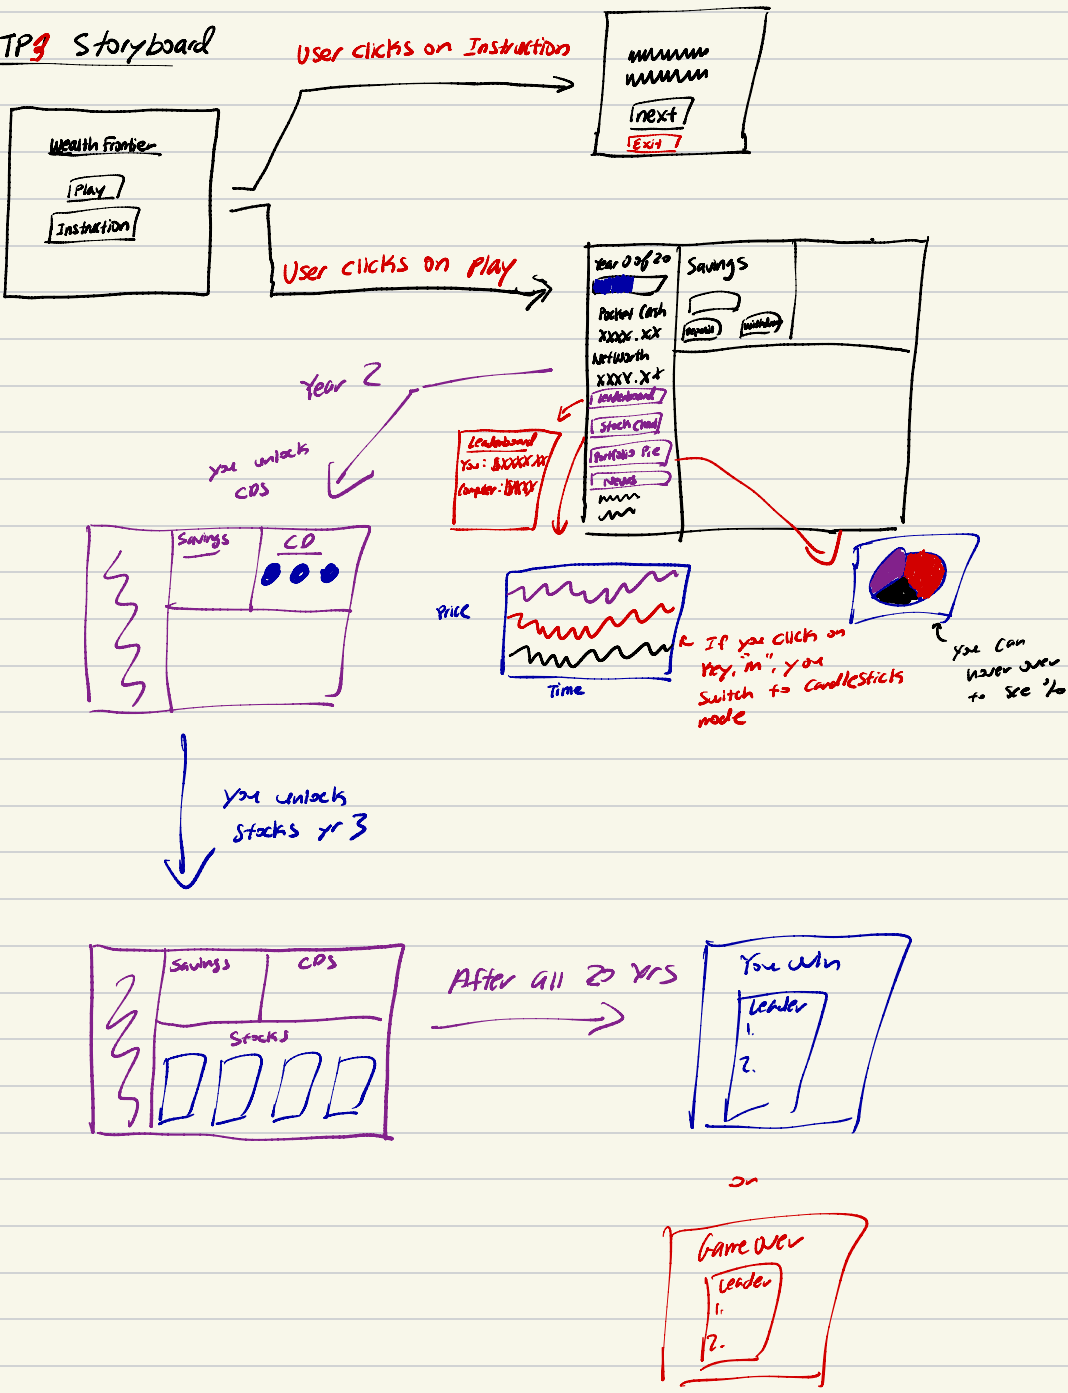 TP3 Storyboard
User clicks on Instruction
next
Exit
Wealth Frontier
Play
Instruction
User clicks on Play
Year 0 of 20
Pocket Cash
XXXX.XX
Net Worth
XXXX.XX
Leaderboard
Stock Chart
Portfolio Pie
News
Savings
Deposit
Withdraw
Leaderboard
You: $XXXX.XX
Computer: $XXXX
Year 2
you unlock
CDS
Savings
CD
Price
Time
If you click on
key, "m", you
switch to candlesticks
mode
you can
hover over
to see %
you unlock
stocks yr 3
Savings
CDs
Stocks
After all 20 yrs
You Win
Leader
1.
2.
or
Game over
Leader
1.
2.